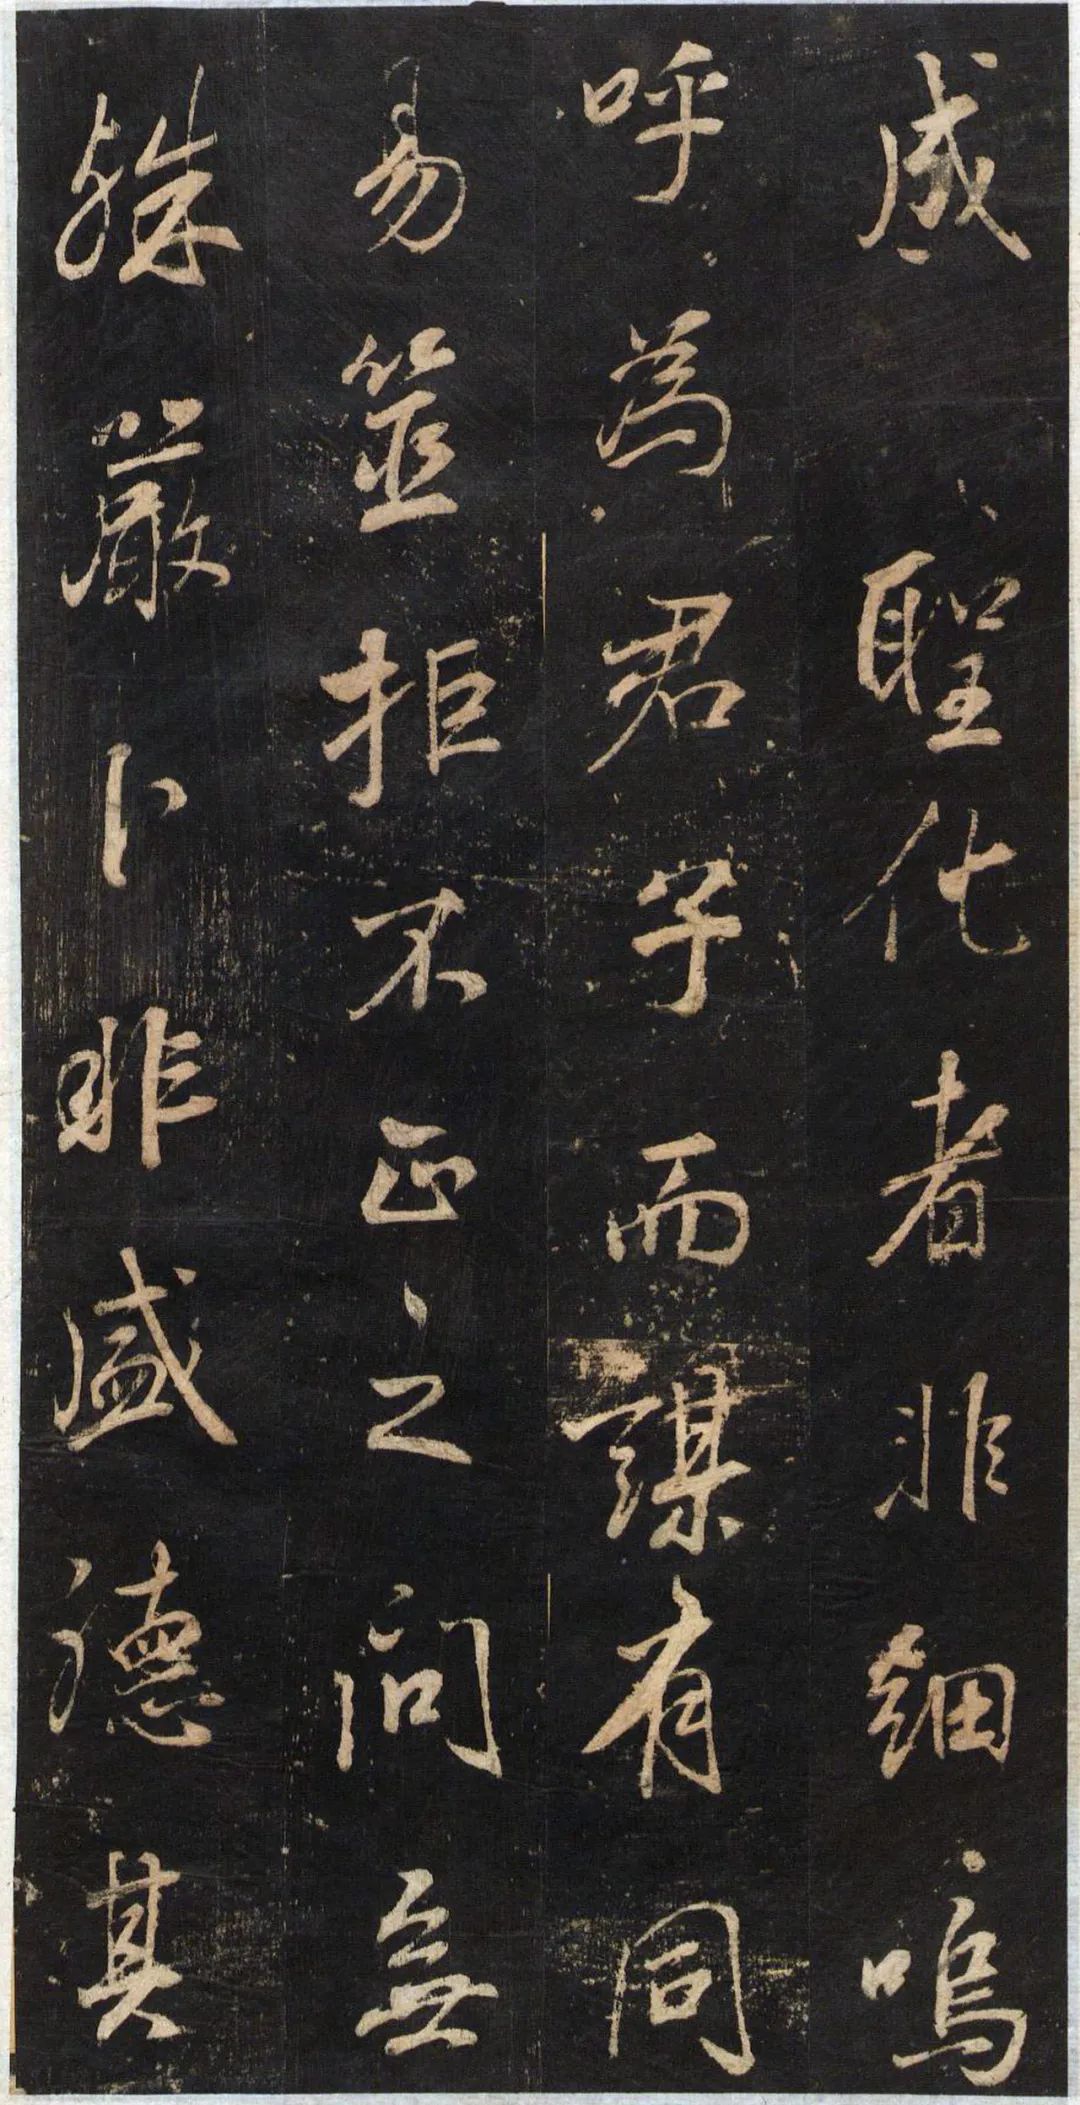 成聖化者非細嗚
呼為君子而謀有同
易筮拒不正之問無
殊嚴卜非盛德其